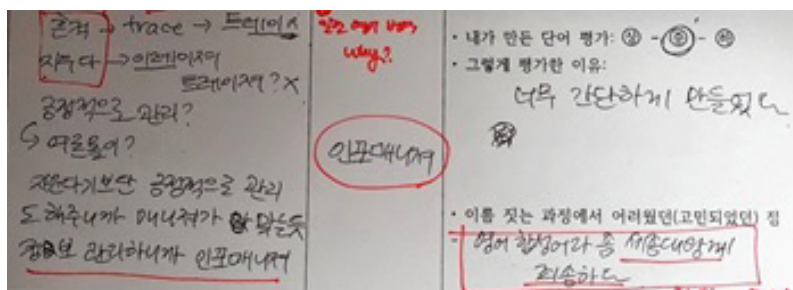 흔적 → trace → 트레이스
지우다 → 이레이져
트레이져? X
긍정적으로 관리?
↳ 여론몰이?
지운다기보단 긍정적으로 관리
도 해주니까 매니져가 맞는듯
정보 관리하니까 인포매니져
why?
인포매니져
· 내가 만든 단어 평가: 상 - 중 - 하
· 그렇게 평가한 이유:
너무 간단하게 만들었다
· 이름 짓는 과정에서 어려웠던(고민되었던) 점
- 영어 합성어라 좀 세종대왕께
죄송하다